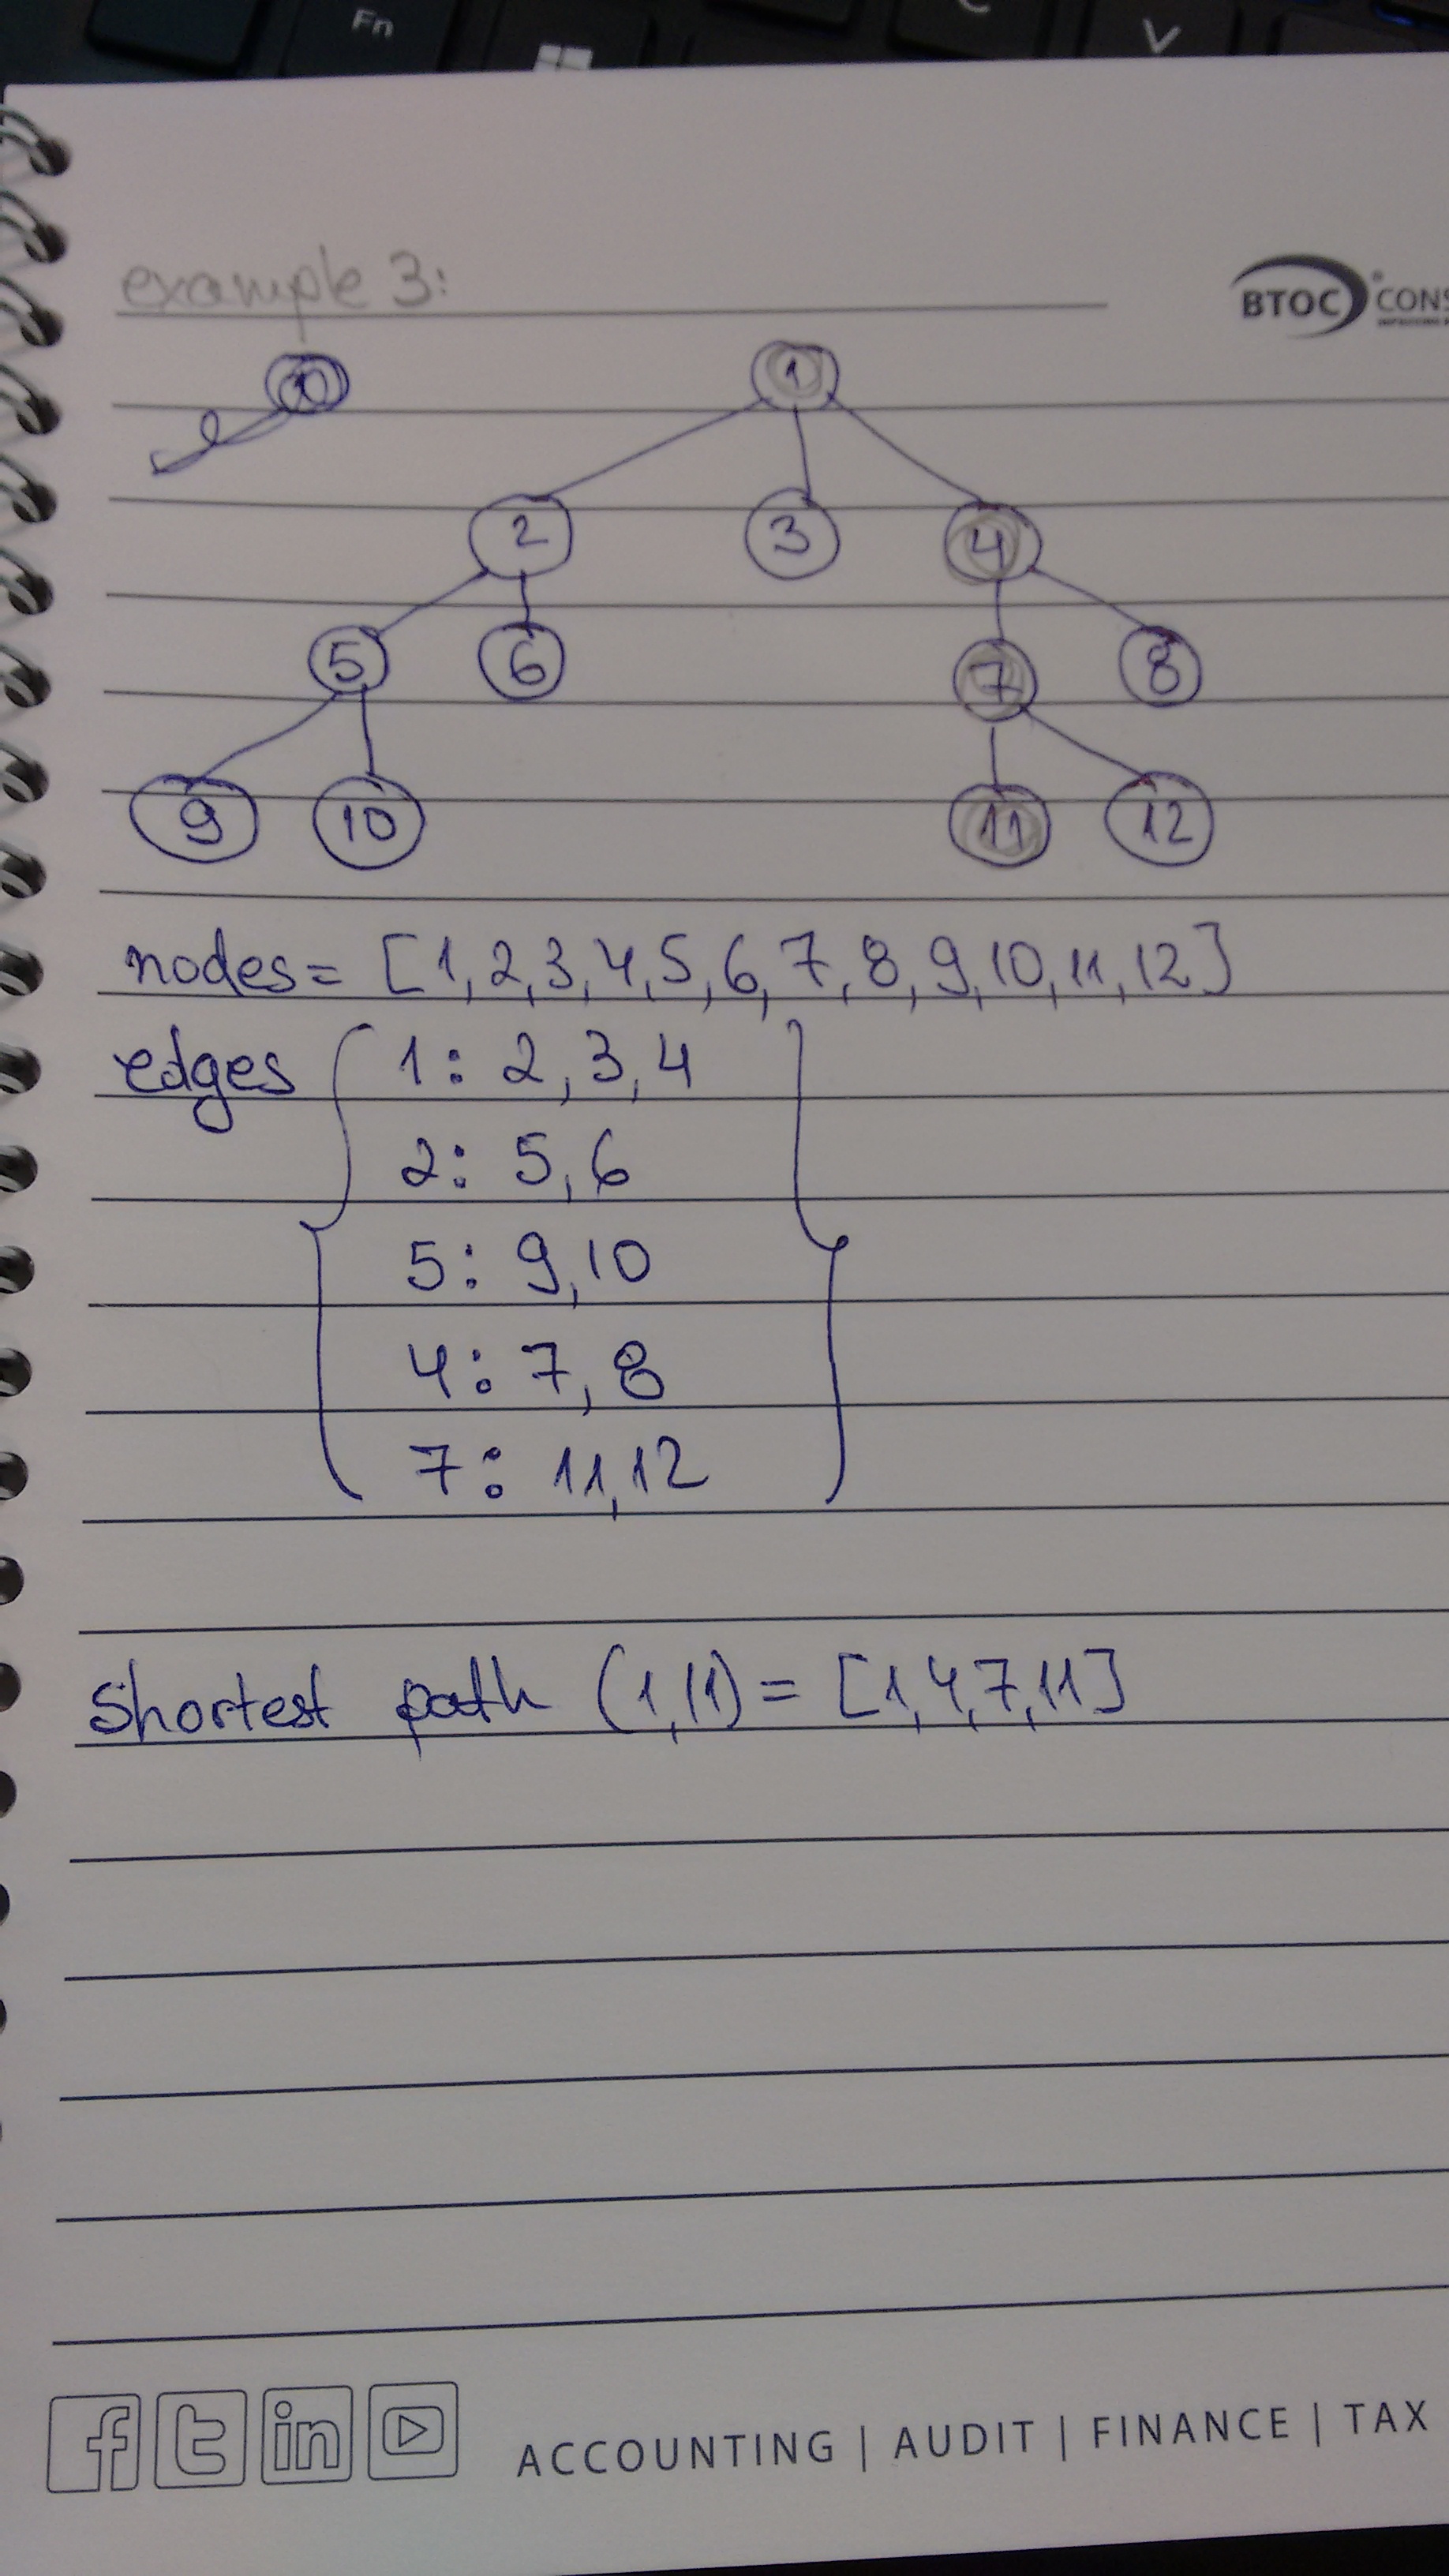 Fn
C
V
example 3:
BTOC CONS
1
2 3 4
5 6 7 8
9 10 11 12
nodes = [1, 2, 3, 4, 5, 6, 7, 8, 9, 10, 11, 12]
edges { 1: 2, 3, 4 }
2: 5, 6
5: 9, 10
4: 7, 8
7: 11, 12
Shortest path (1, 11) = [1, 4, 7, 11]
f t in
ACCOUNTING | AUDIT | FINANCE | TAX